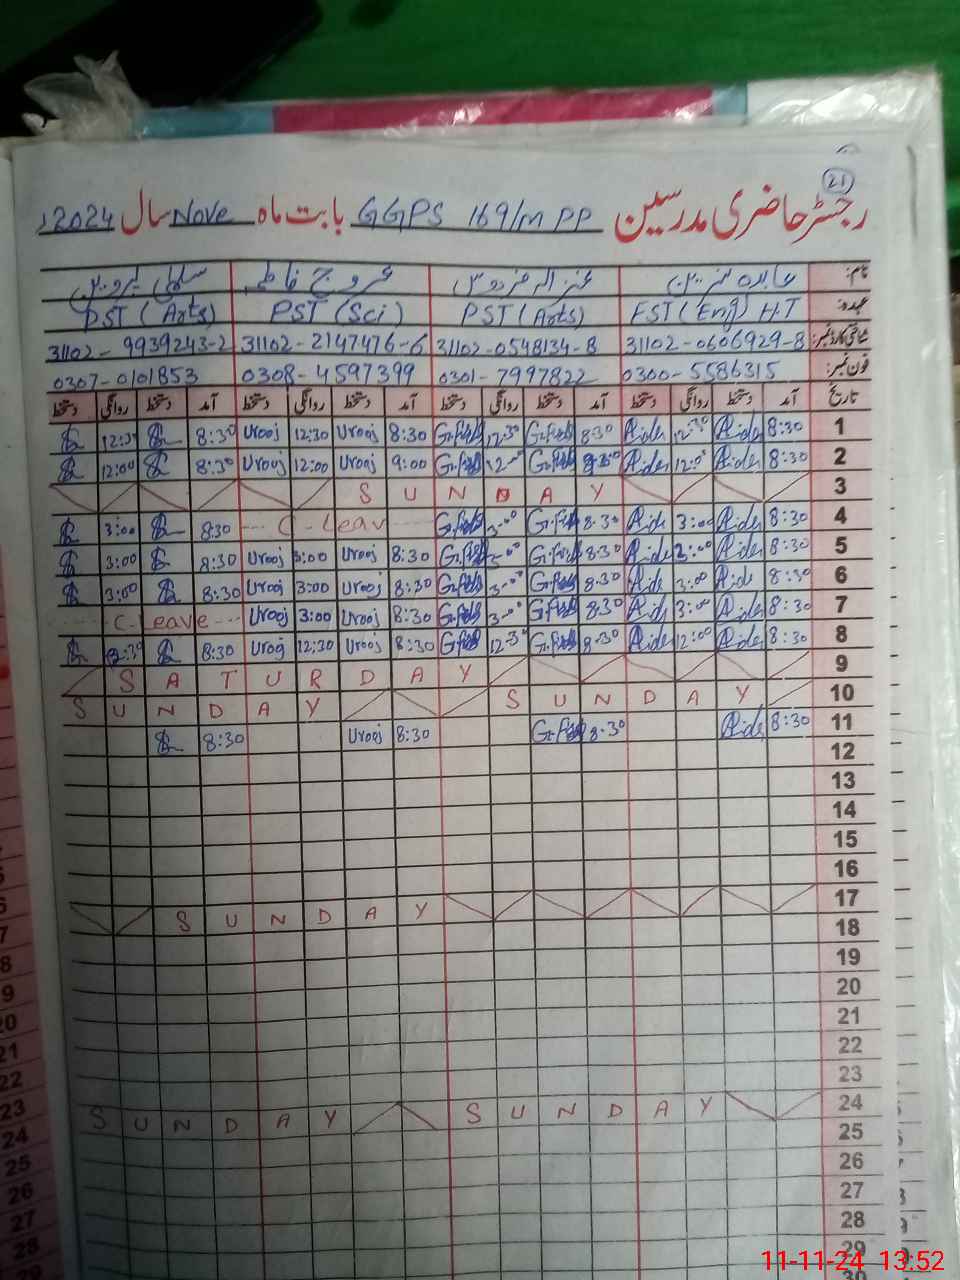 21
رجسٹر حاضری مدرسین GGPS 169/m PP بابت ماہ Nove سال 2024ء
نام: عابدہ نسرین عروج فاطمہ سلمیٰ پروین
عہدہ: EST (Eng) H.T PST (Arts) PST (Sci) PST (Arts)
شناختی کارڈ نمبر: 31102-0606929-8 31102-0548134-8 31102-2147476-6 31102-9939243-2
فون نمبر: 0300-5586315 0301-7997822 0308-4597399 0307-0101853
تاریخ آمد دستخط روانگی دستخط آمد دستخط روانگی دستخط آمد دستخط روانگی دستخط آمد دستخط روانگی دستخط
1 8:30 12:30 8:30 12:30 8:30 Urooj 12:30 Urooj 8:30 12:30
2 8:30 12:00 9:00 Urooj 12:00 Urooj 8:30 12:00
3 SUNDAY
4 8:30 3:00 8:30 3:00 C-Leav 8:30 3:00
5 8:30 3:00 8:30 3:00 8:30 Urooj 3:00 Urooj 8:30 3:00
6 8:30 3:00 8:30 3:00 8:30 Urooj 3:00 Urooj 8:30 3:00
7 8:30 3:00 8:30 3:00 8:30 Urooj 3:00 Urooj C Leave
8 8:30 12:00 8:30 12:30 8:30 Urooj 12:30 Urooj 8:30
9 SATURDAY
10 SUNDAY SUNDAY
11 8:30 8:30 8:30 Urooj 8:30
12
13
14
15
16
17 SUNDAY
18
19
20
21
22
23
24 SUNDAY SUNDAY
25
26
27
28
29
30
11-11-24 13:52